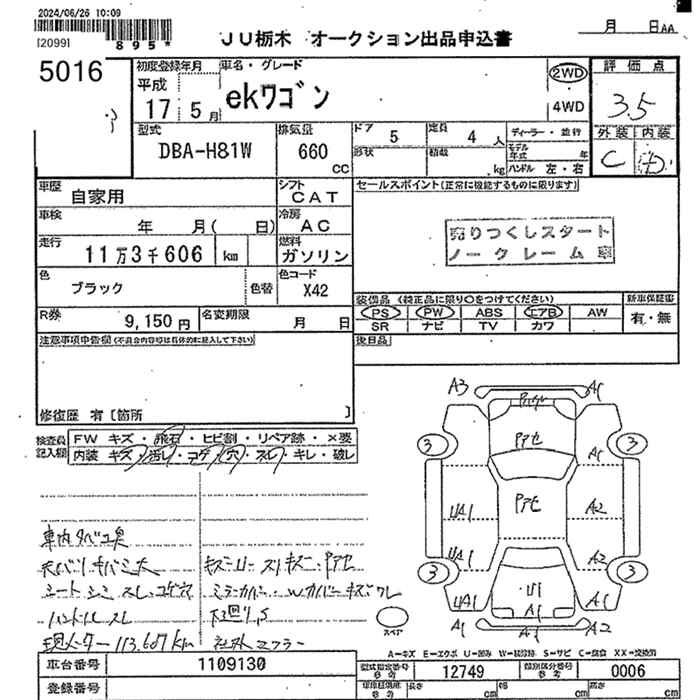 2024/06/26 10:09
[2099]
895
JU栃木 オークション出品申込書
月 日AA
5016
初度登録年月
平成
17 5月
車名・グレード
ekワゴン
2WD
4WD
評価点
3.5
外装 内装
C
型式
DBA-H81W
排気量
660
CC
ドア 5
定員 4人
形状
積載 kg
ディーラー・並行
モデル年式 年
ハンドル 左・右
車歴
自家用
シフト
CAT
車検
年 月( 日)
冷房
AC
走行
11万3千606 km
燃料
ガソリン
色
ブラック
色替
色コード
X42
R券
9,150円
名変期限
月 日
セールスポイント(正常に機能するものに限ります)
売りつくしスタート
ノークレーム車
装備品 (純正品に限り○をつけてください)
PS PW ABS エアB AW
SR ナビ TV カワ
新車保証書
有・無
後日品
注意事項申告欄(不具合内容等は具体的に記入して下さい)
修復歴 有〔箇所 〕
検査員記入欄
FW キズ・飛石・ヒビ割・リペア跡・×要
内装 キズ・汚レ・コゲ・穴・スレ・キレ・破レ
車内タバコ臭
シートシミ スレ コゲ穴
ハンドルスレ
現メーター 113,607km
下廻り
社外マフラー
A3 A1
アセ
アセ
3 3
A1
UA1 A2
UA1 A2
3 3
UA1 U1 A1
A1
A1 A2
スペア
A=キズ E=エクボ U=凹み W=補修跡 S=サビ C=腐食 XX=交換済
車台番号
1109130
登録番号
型式指定番号
参考
12749
類別区分番号
参考
0006
長さ cm
幅 cm
高さ cm